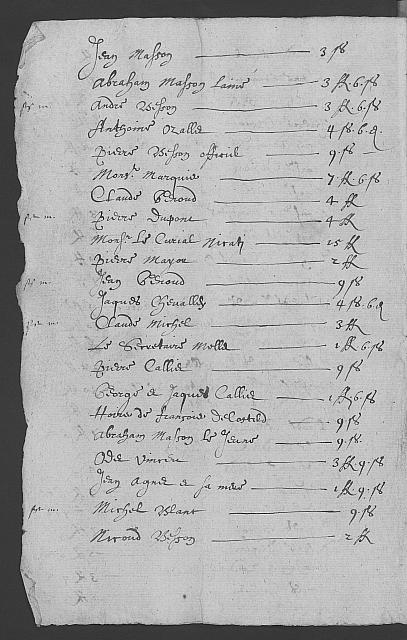 Jean Masson 3 ss
Abraham Masson Laine 3 ff. 6. ss
Andre Besson 3 ff. 6. ss
Anthoine 4 ss. 6. d.
Pierre Besson officiel 9. ss
Monsr. Marquis 7 ff. 6 ss
Claude Peroud 4 ff
Pierre Dupont 4 ff
Monsr. Le Curial Nicati 15 ff
Pierre Mayor 2 ff
Jean Peroud 9 ss
Jaques Chevalley 4 ss. 6. d
Claude Michel 3 ff
Le Secretaire Melle 1 ff 6 ss
Pierre Callie 9 ss
George & Jaques Callie 1 ff 6 ss
Hoirs de François 9 ss
Abraham Masson Le Jeune 9. ss
Odé Vincen 3 ff 9. ss
Jean Agnie & sa mere 1 ff 9. ss
Michel Blanc 9. ss
Nicoud Besson 2 ff